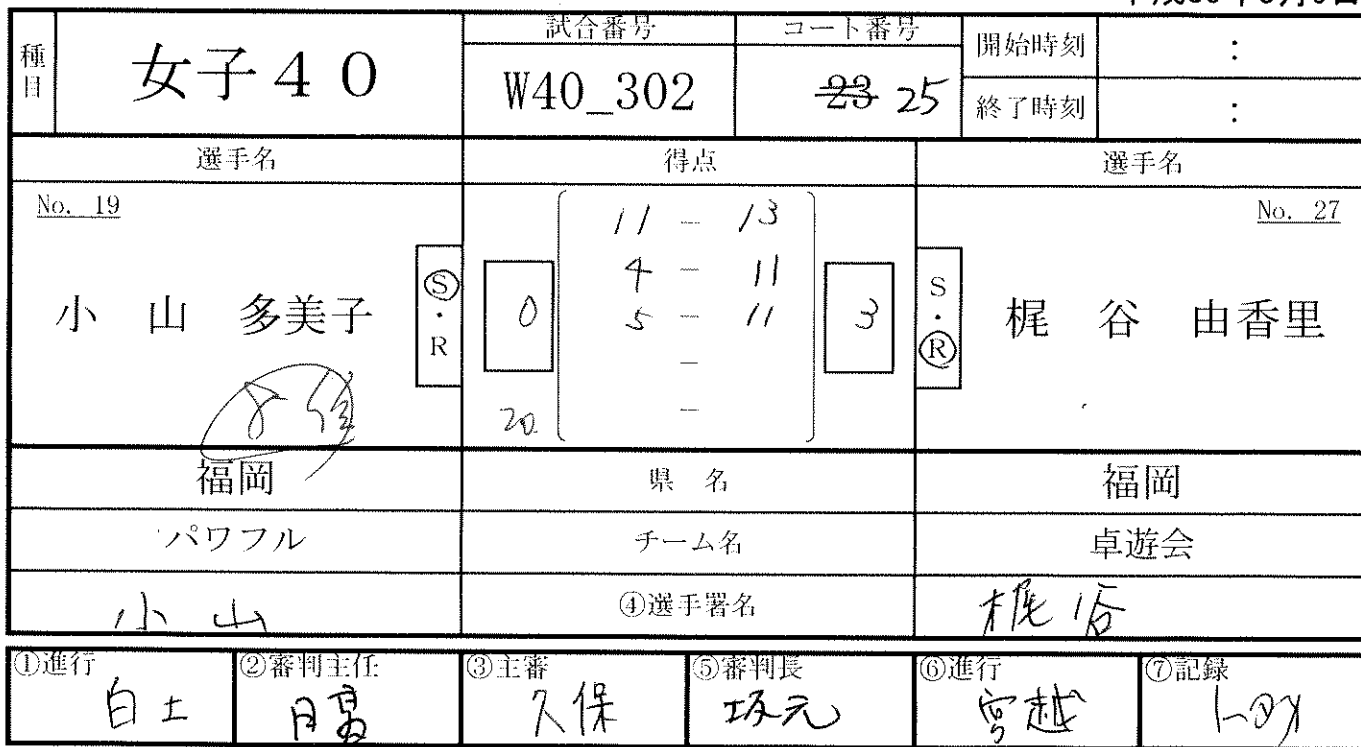 種目
女子40
試合番号
W40_302
コート番号
23 25
開始時刻 :
終了時刻 :
選手名 得点 選手名
No. 19
小 山 多美子
S・R
0
11 - 13
4 - 11
5 - 11
-
-
3
20
S・R
No. 27
梶 谷 由香里
福岡 県 名 福岡
パワフル チーム名 卓遊会
小山 ④選手署名 梶谷
①進行 ②審判主任 ③主審 ⑤審判長 ⑥進行 ⑦記録
白土 久保 坂元 宮越